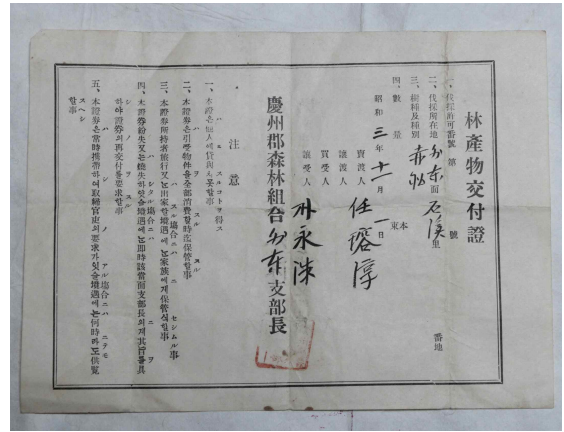 林產物交付證
一、伐採許可番號 第 號
二、伐採所在地 内東面 石溪里 番地
三、樹種及種別 赤松
四、數量 本 束
昭和三年十一月一日
賣渡人
讓渡人 任瑢淳
買受人
讓受人 朴永洙
慶州郡森林組合内東支部長
注意
一、本證券은他人에게貸與치못할事
二、本證券은引受物件을全部消費할時迄保管할事
三、本證券所持者旅行又는出家할境遇에는家族에게保管식힐事
四、本證券紛失又는燒失하엿을境遇에는即時該當面支部長의게其旨를具
하야證券의再交付를要求할事
五、本證券은常時携帶하여取締官吏의要求가잇을境遇에는何時라도供覽
할事